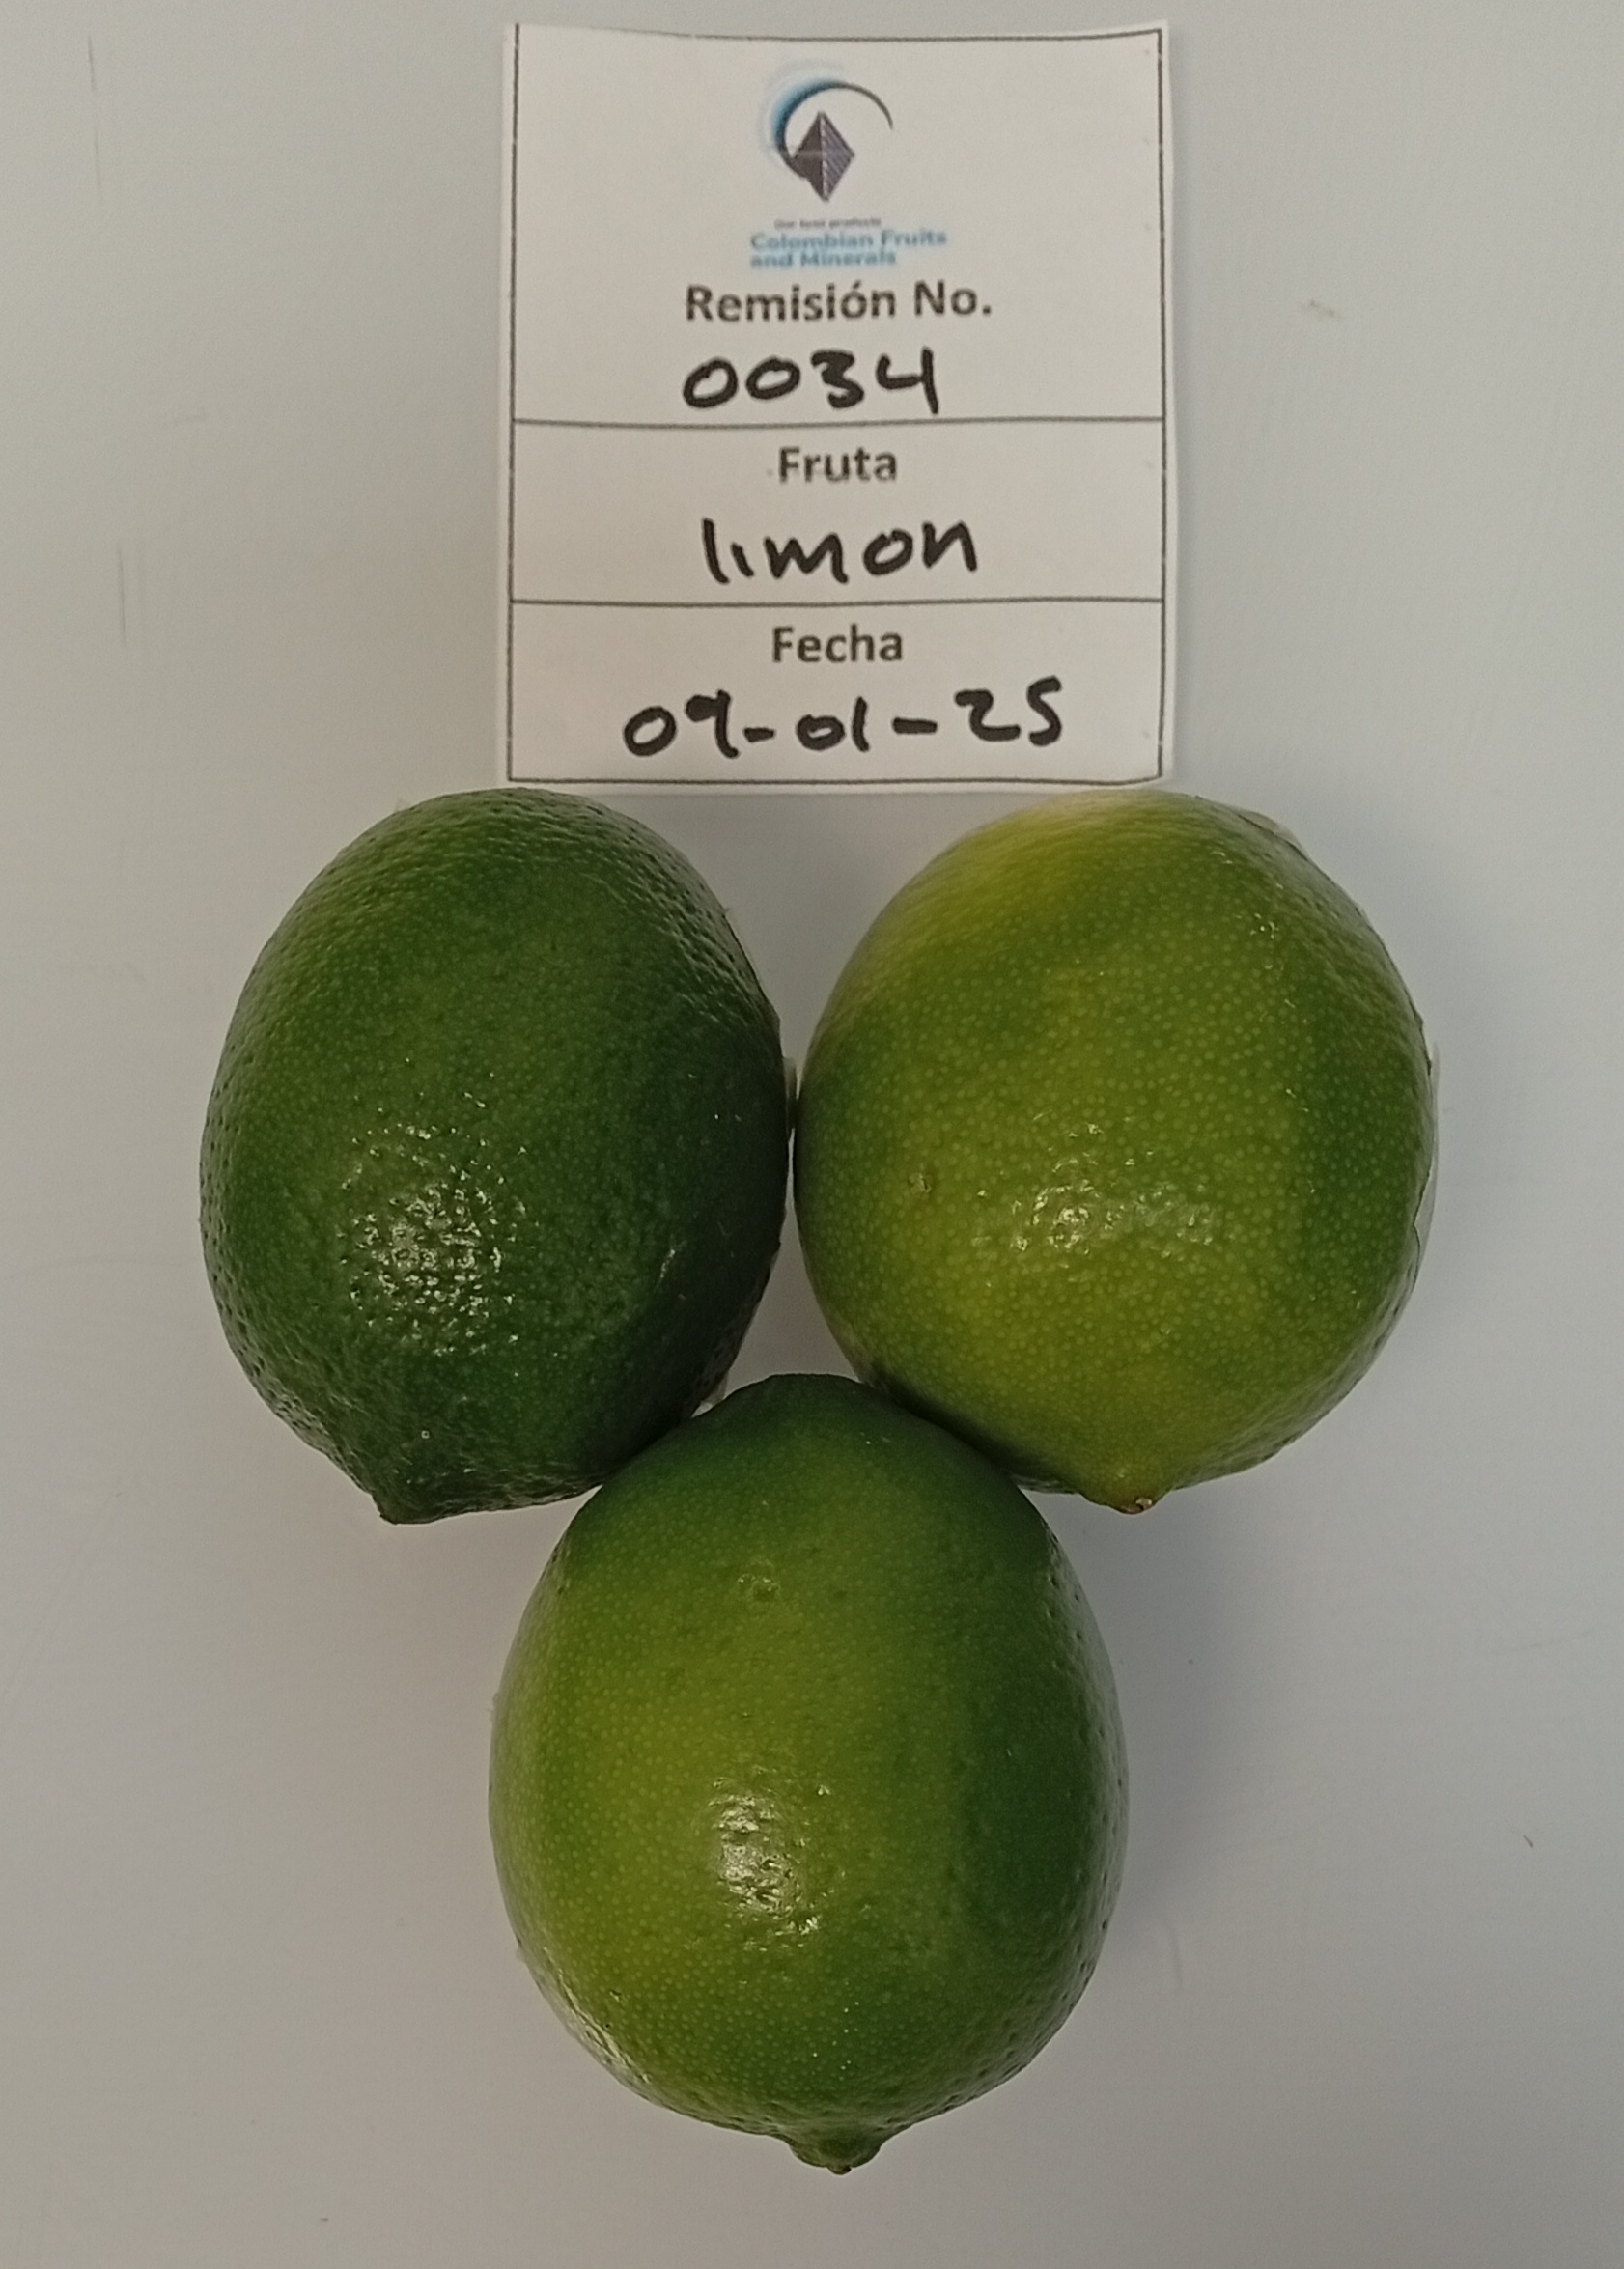 Our best products
Colombian Fruits
and Minerals
Remisión No.
0034
Fruta
limon
Fecha
09-01-25